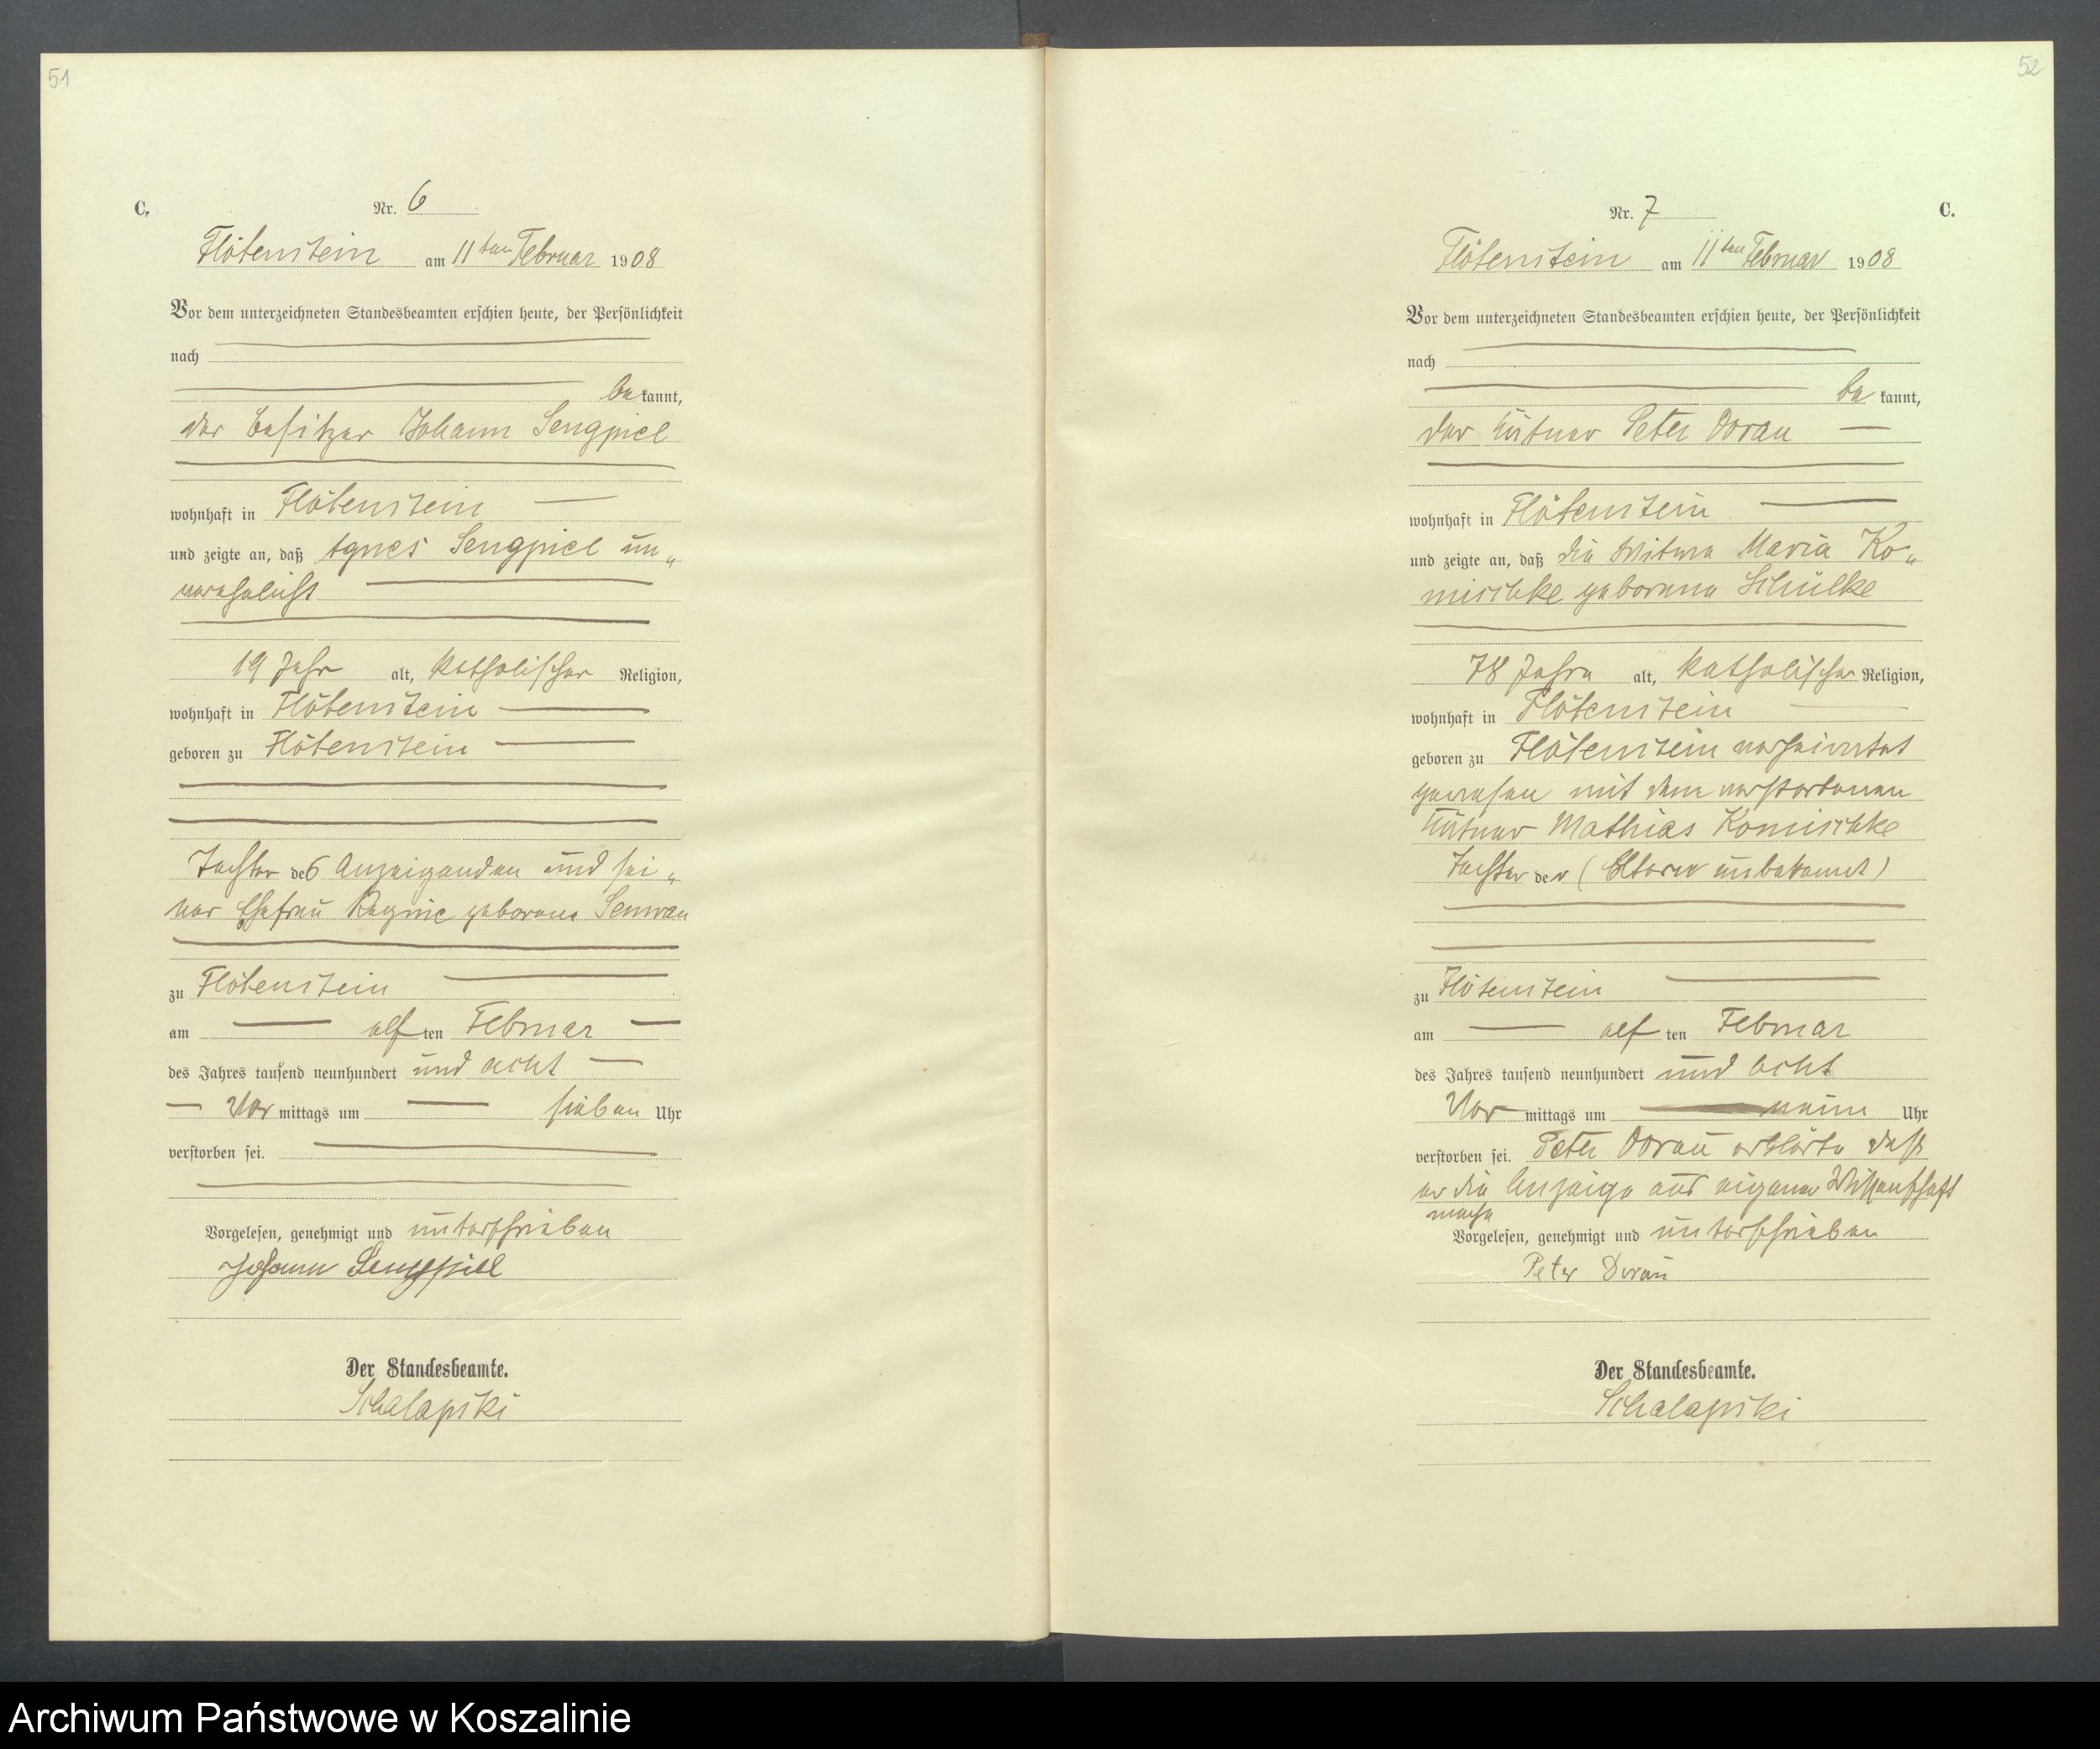 51
C.
Nr. 6
Flötenstein am 11ten Februar 1908
Vor dem unterzeichneten Standesbeamten erschien heute, der Persönlichkeit
nach
be kannt,
der Besitzer Johann Sengpiel
wohnhaft in Flötenstein
und zeigte an, daß Agnes Sengpiel un„
verehelicht
19 Jahr alt, katholischer Religion,
wohnhaft in Flötenstein
geboren zu Flötenstein
Tochter des Anzeigenden und sei„
ner Ehefrau Regine geborene Semrau
zu Flötenstein
am elf ten Februar
des Jahres tausend neunhundert und acht
Vor mittags um sieben Uhr
verstorben sei.
Vorgelesen, genehmigt und unterschrieben
Johann Sengpiel
Der Standesbeamte.
Schalapski
52
C.
Nr. 7
Flötenstein am 11ten Februar 1908
Vor dem unterzeichneten Standesbeamten erschien heute, der Persönlichkeit
nach
be kannt,
der Kätner Peter Dorau
wohnhaft in Flötenstein
und zeigte an, daß die Witwe Maria Ko„
mischke geborene Schülke
78 Jahre alt, katholischer Religion,
wohnhaft in Flötenstein
geboren zu Flötenstein verheiratet
gewesen mit dem verstorbenen
Kätner Mathias Komischke
Tochter der (Eltern unbekannt)
zu Flötenstein
am elf ten Februar
des Jahres tausend neunhundert und acht
Vor mittags um neun Uhr
verstorben sei. Peter Dorau erklärte daß
er die Anzeige aus eigener Wissenschaft
mache
Vorgelesen, genehmigt und unterschrieben
Peter Dorau
Der Standesbeamte.
Schalapski
Archiwum Państwowe w Koszalinie